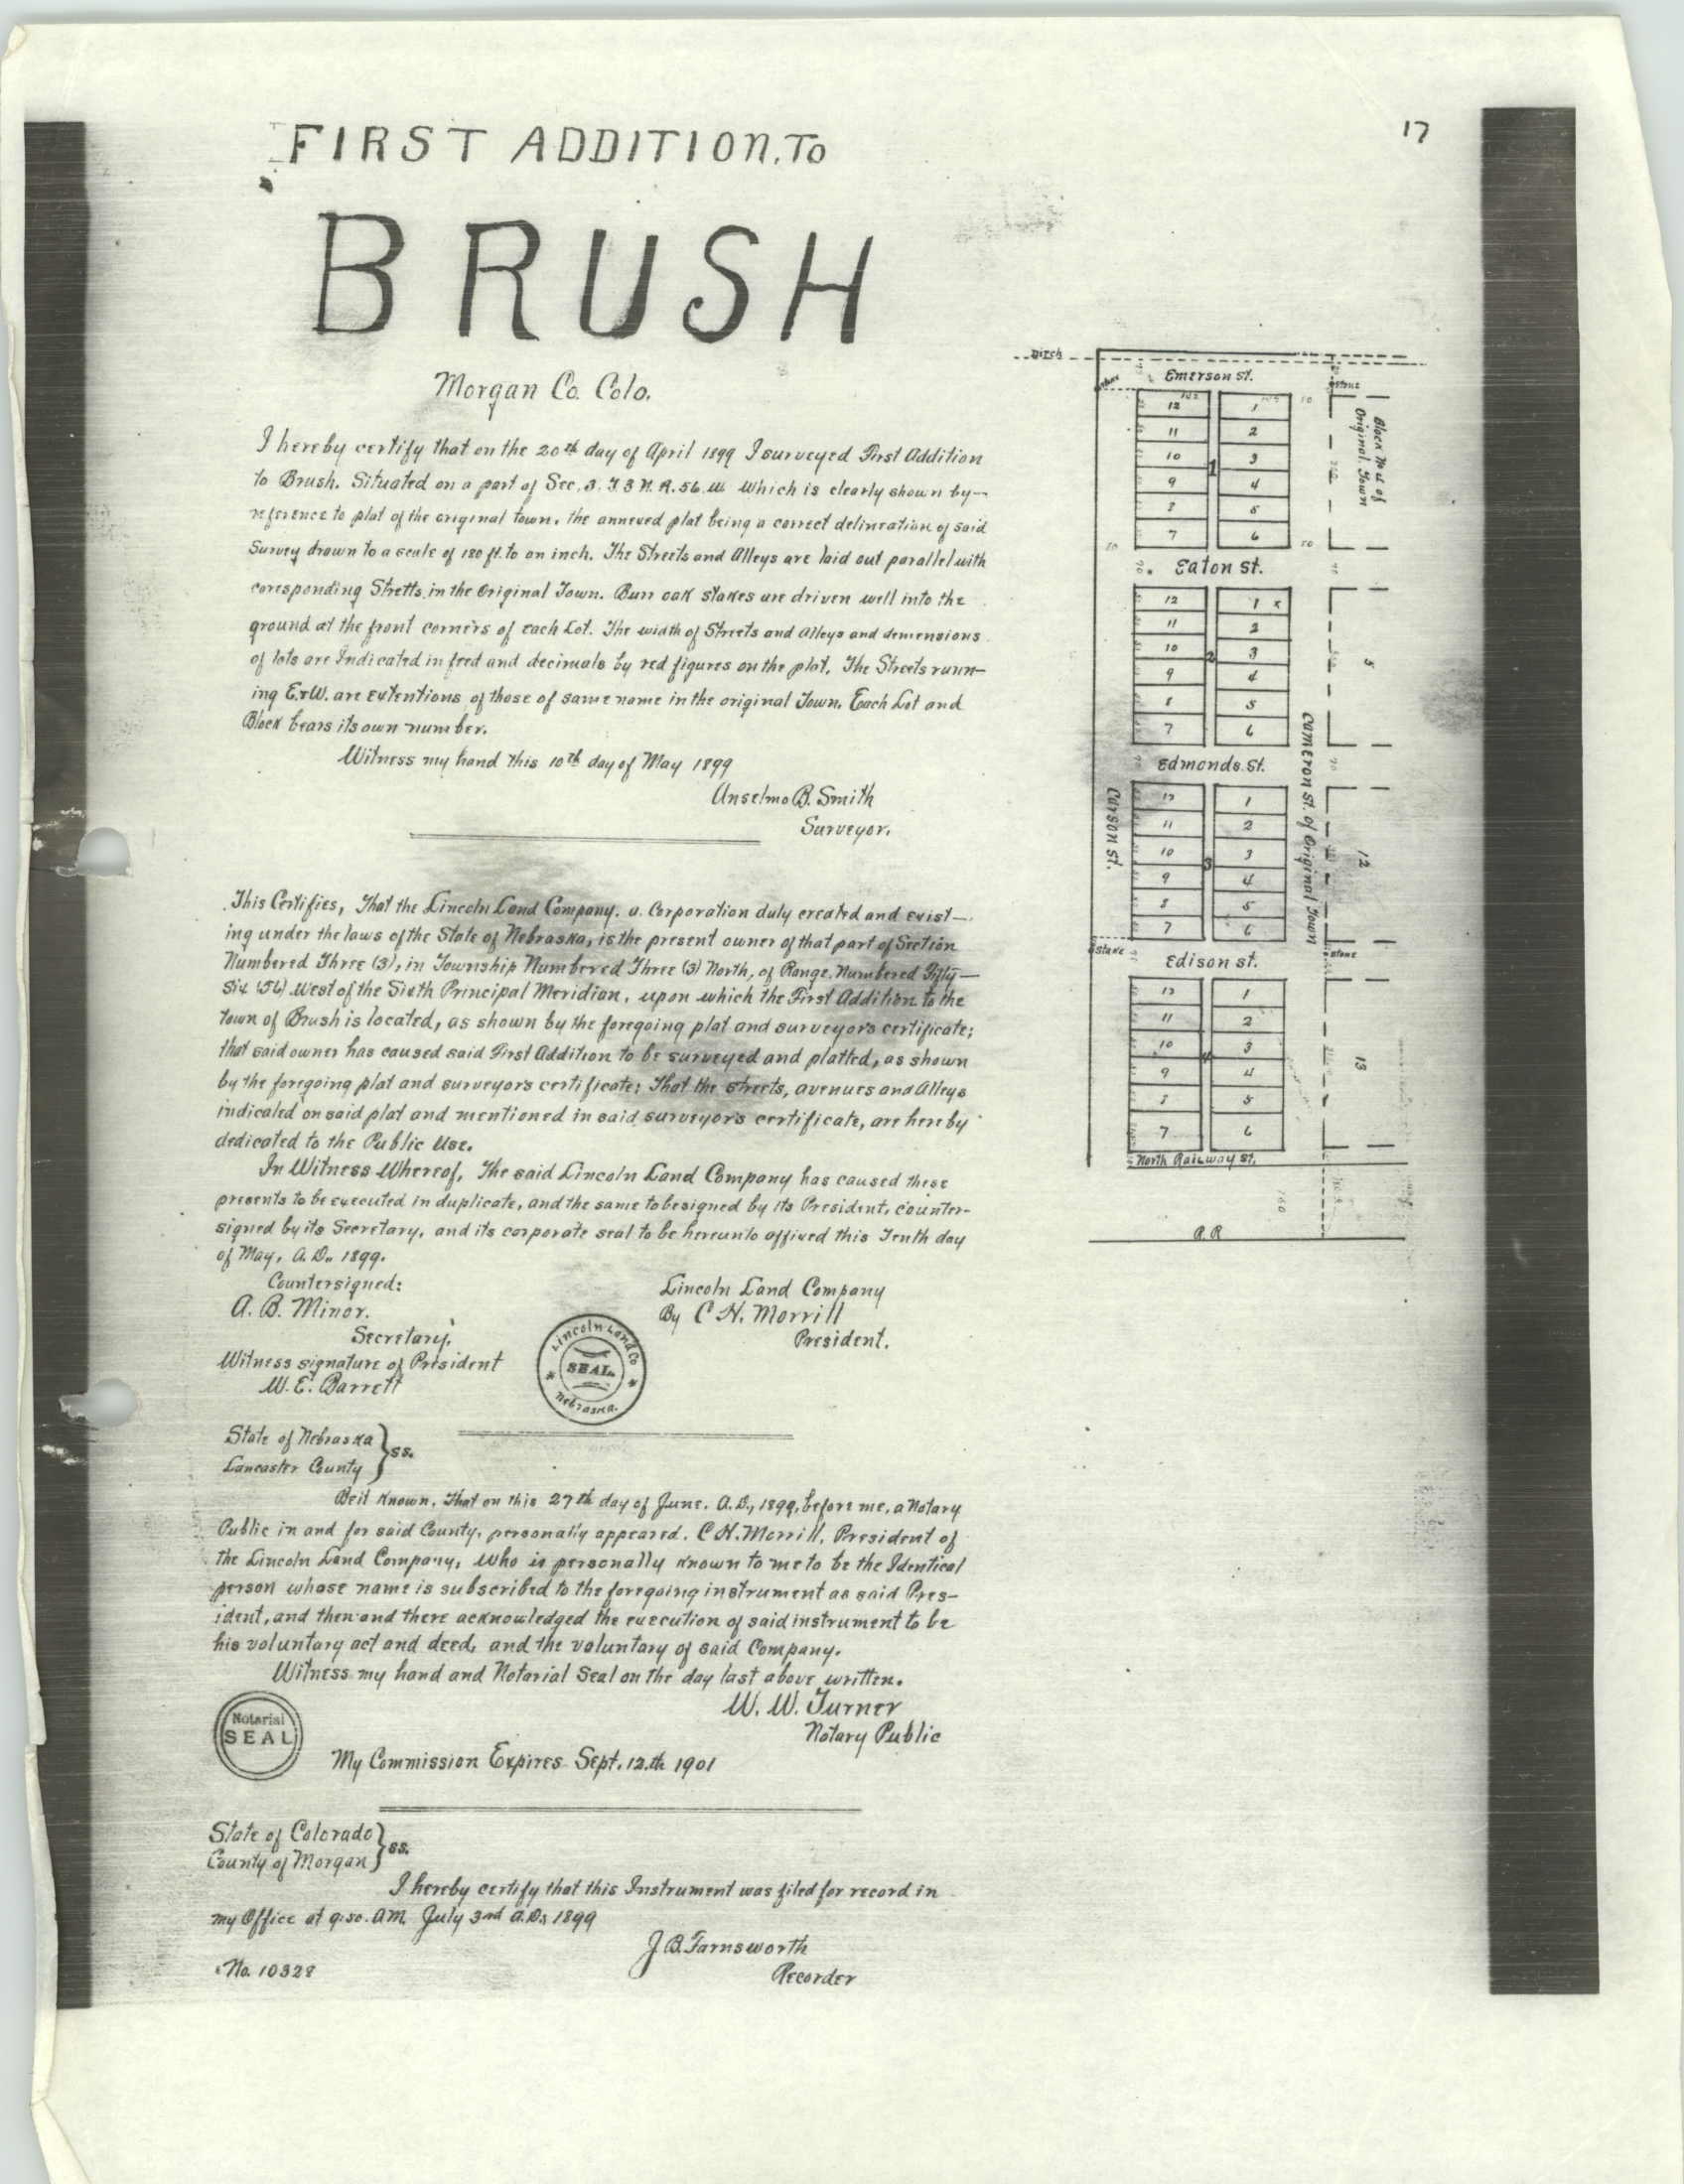 17
FIRST ADDITION. TO
BRUSH
Morgan Co. Colo.
I hereby certify that on the 20th day of April 1899 I surveyed First Addition
to Brush. Situated on a part of Sec. 3. T. 3 N. R. 56. W. which is clearly shown by—
reference to plat of the original town. the annexed plat being a correct delineation of said
Survey drawn to a scale of 180 ft. to an inch. The Streets and Alleys are laid out parallel with
coresponding Stretts. in the Original Town. Burr oak stakes are driven well into the
ground at the front corners of each Lot. The width of Streets and Alleys and demensions
of lots are Indicated in feed and decimals by red figures on the plat. The Streets runn—
ing E. & W. are extentions of those of same name in the original Town. Each Lot and
Block bears its own number.
Witness my hand this 10th day of May 1899
Anselmo B. Smith
Surveyor.
This Certifies, That the Lincoln Land Company. a. Corporation duly created and exist—
ing under the laws of the State of Nebraska, is the present owner of that part of Section
Numbered Three (3), in Township Numbered Three (3) North, of Range, Numbered Fifty—
Six (56) West of the Sixth Principal Meridian, upon which the First Addition to the
town of Brush is located, as shown by the foregoing plat and surveyor's certificate;
that said owner has caused said First Addition to be surveyed and platted, as shown
by the foregoing plat and surveyor's certificate; That the streets, avenues and Alleys
indicated on said plat and mentioned in said surveyor's certificate, are hereby
dedicated to the Public Use.
In Witness Whereof, The said Lincoln Land Company has caused these
presents to be executed in duplicate, and the same to be signed by its President, counter-
signed by its Secretary, and its corporate seal to be hereunto affixed this Tenth day
of May, A. D., 1899.
Countersigned:
A. B. Minor.
Secretary.
Witness signature of President
W. E. Barrett
Lincoln Land Company
By C H. Morrill
President.
Lincoln Land Co
SEAL
Nebraska.
State of Nebraska
Lancaster County } ss.
Be it Known, That on this 27th day of June. A. D., 1899, before me, a Notary
Public in and for said County, personally appeared. C H. Morrill, President of
the Lincoln Land Company, who is personally known to me to be the Identical
person whose name is subscribed to the foregoing instrument as said Pres—
ident, and then and there acknowledged the execution of said instrument to be
his voluntary act and deed, and the voluntary of said Company.
Witness my hand and Notarial Seal on the day last above written.
W. W. Turner
Notary Public
Notarial
SEAL
My Commission Expires Sept. 12.th 1901
State of Colorado
County of Morgan } ss.
I hereby certify that this Instrument was filed for record in
my Office at 9.50. A.M. July 3rd A.D. 1899
J. B. Farnsworth
Recorder
No. 10328
Ditch
Emerson St.
stone
12 1
11 2
10 3
1
9 4
8 5
7 6
Block No 4 of
Original Town
Eaton St.
12 1 x
11 2
10 3
2
9 4
8 5
7 6
5
Edmonds. St.
Carson St.
Cameron St. of Original Town
12 1
11 2
10 3
3
9 4
8 5
7 6
12
stake
stone
Edison St.
12 1
11 2
10 3
4
9 4
8 5
7 6
13
North Railway St.
160
R. R